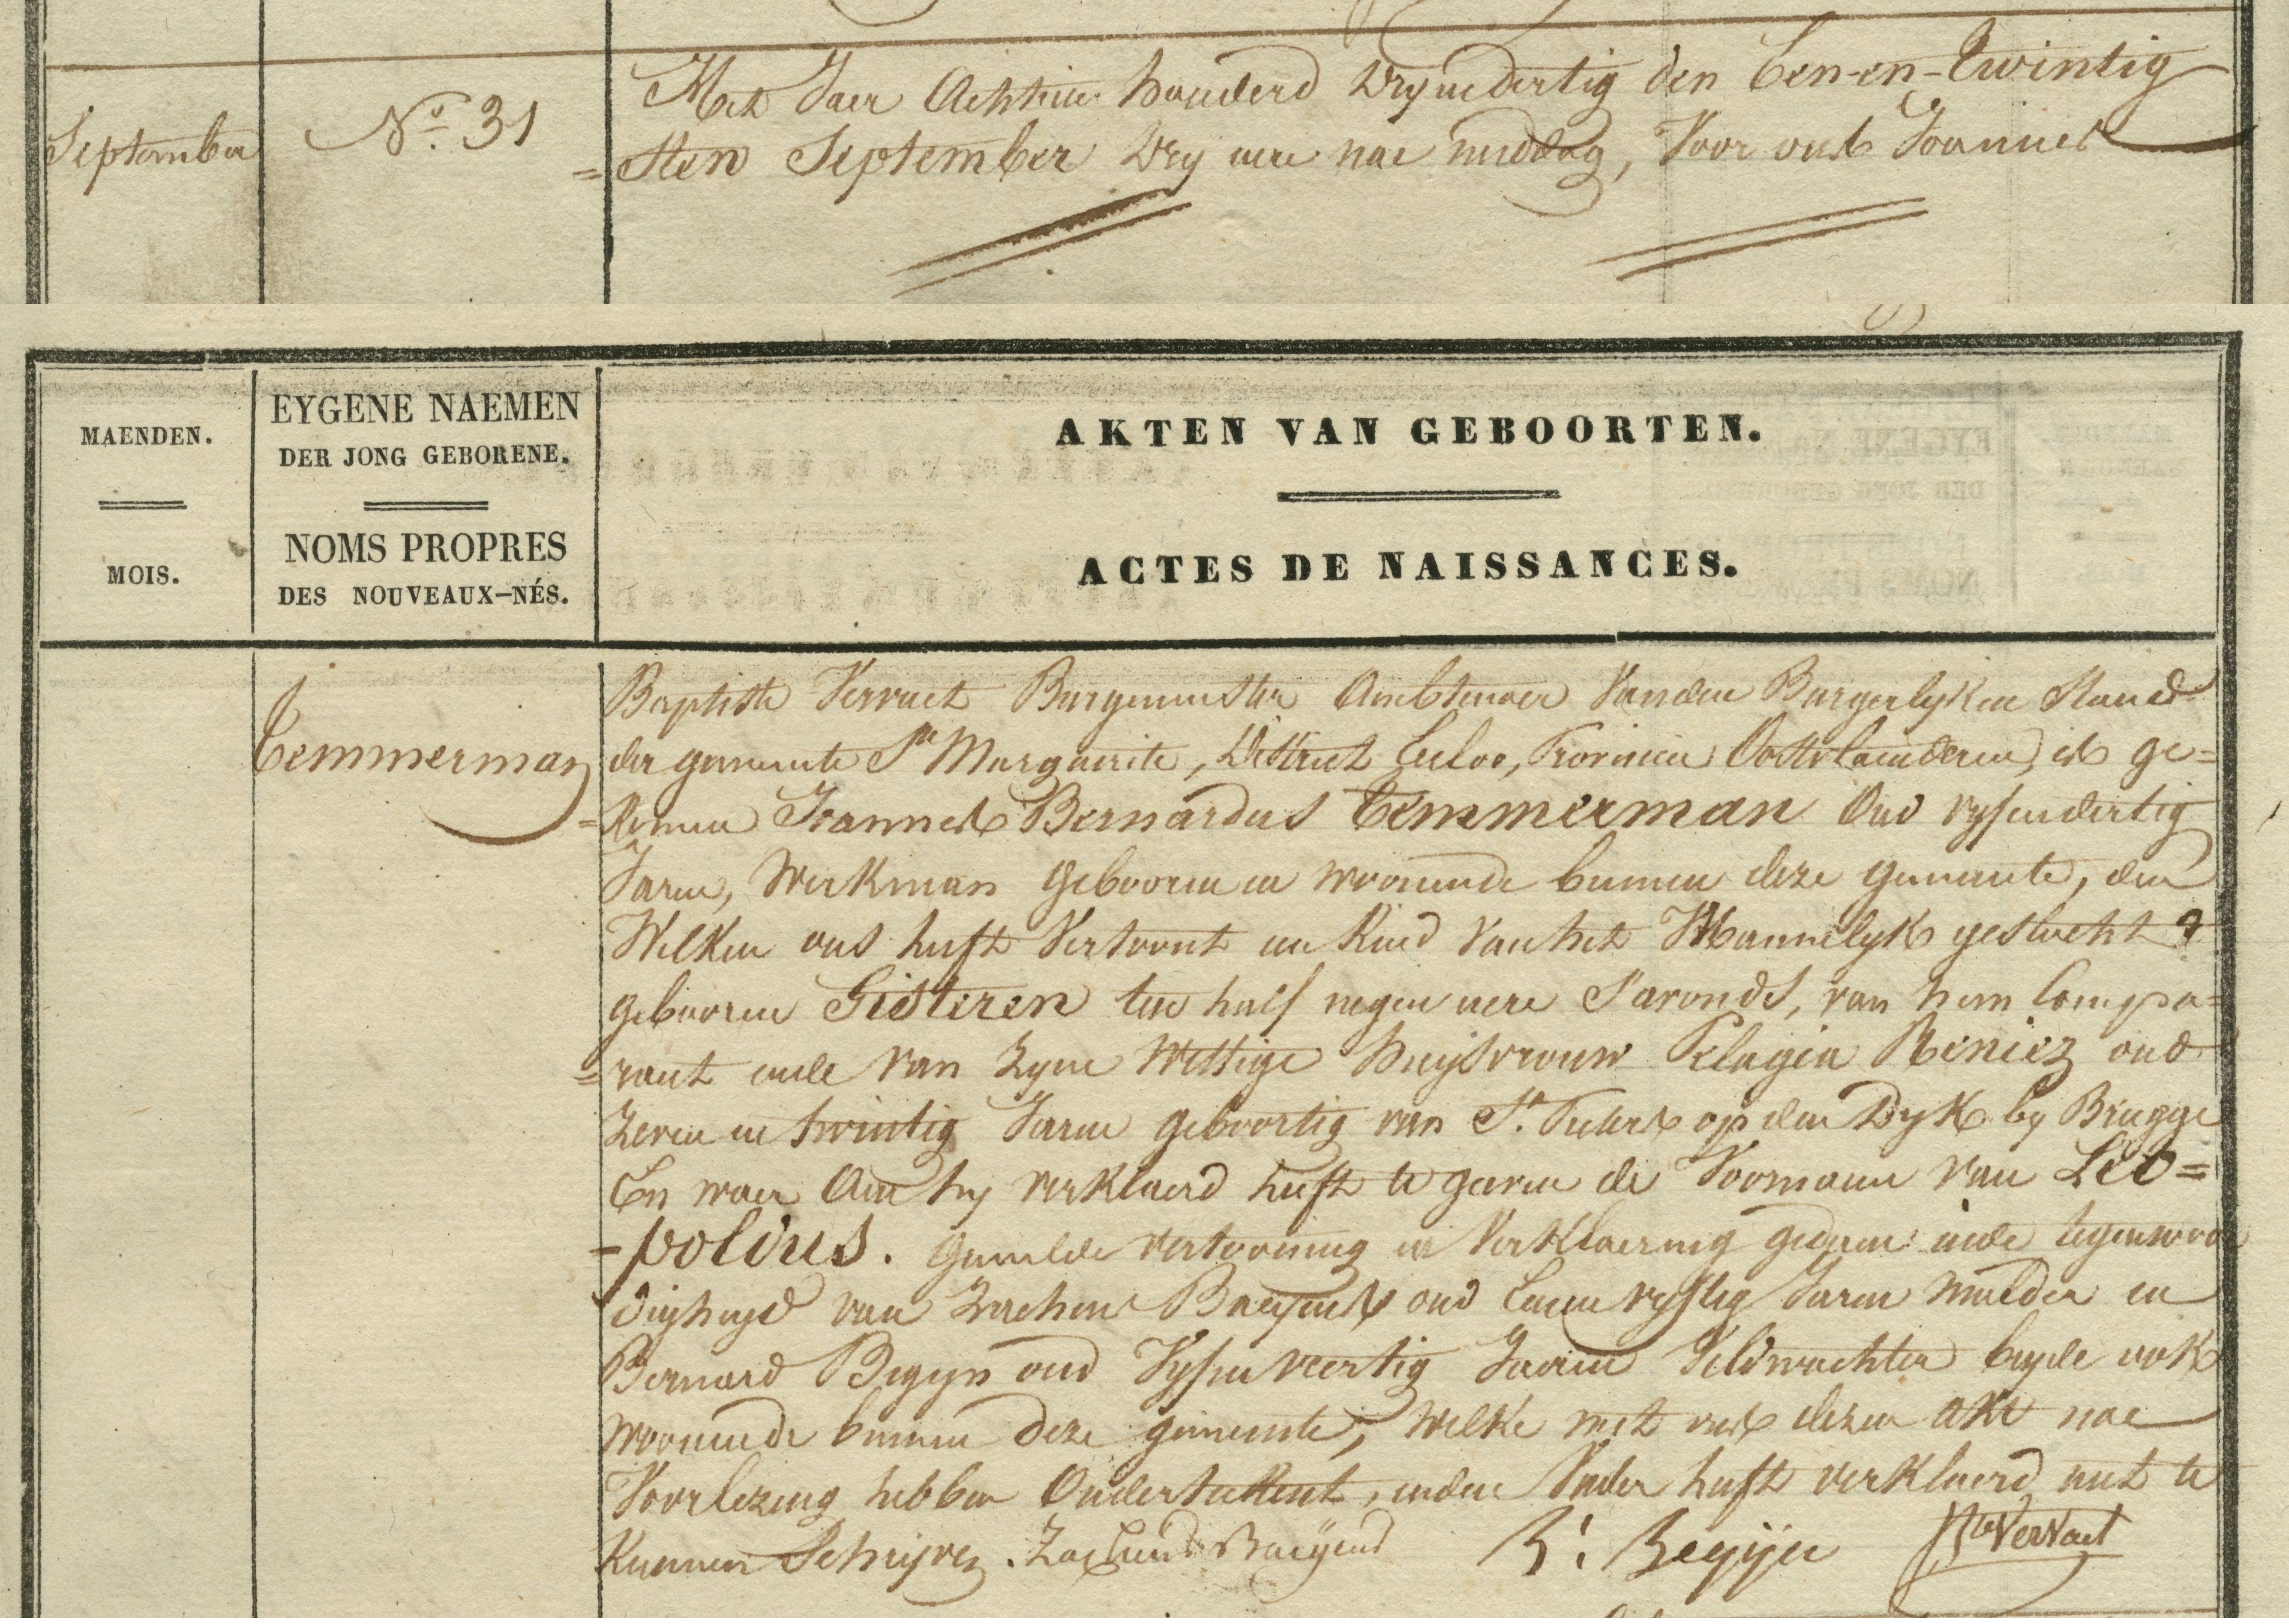 September
No. 31
Het Jaer Achttien honderd Dryendertig den Een-en-Twintig
=sten September Dry uere nae middag, Voor ons Joannes
MAENDEN.
MOIS.
EYGENE NAEMEN
DER JONG GEBORENE.
NOMS PROPRES
DES NOUVEAUX-NÉS.
AKTEN VAN GEBOORTEN.
ACTES DE NAISSANCES.
Temmerman
Baptiste Vervaet Burgemeester Ambtenaer Vanden Burgerlyken Stand
der gemeente Ste Marguerite, District Eecloo, Provincie Oostvlaenderen, is ge=
=komen Joannes Bernardus Temmerman Oud vyfendertig
Jaren, Werkman Gebooren en woonende binnen deze gemeente, den
Welken ons heeft Vertoont een Kind van het Mannelyk geslacht
gebooren Gisteren ten half negen uere S'avonds, van hem Compa=
=rant ende van Zyne Wettige huysvrouw Pelagia Reniez oud
Zeven en twintig Jaren geboortig van St. Pieters op den Dyk by Brugge
En waer Aen hy verklaerd heeft te geeven de Voornaem van Leo=
=poldus. Gemelde vertooning en Verklaering gedaen inde tegenwoor
digheyd van Zacheus Baeyens oud Eenenvyftig Jaren Mulder en
Bernard Begyn oud Vyfenveertig Jaeren Veldwachter beyde ook
woonende binnen deze gemeente, welke met ons dezen akt nae
Voorlezing hebben Onderteekent, enden Vader heeft verklaerd niet te
Kunnen Schryven. Zacheus Baeyens B: Begijn JBte Vervaet